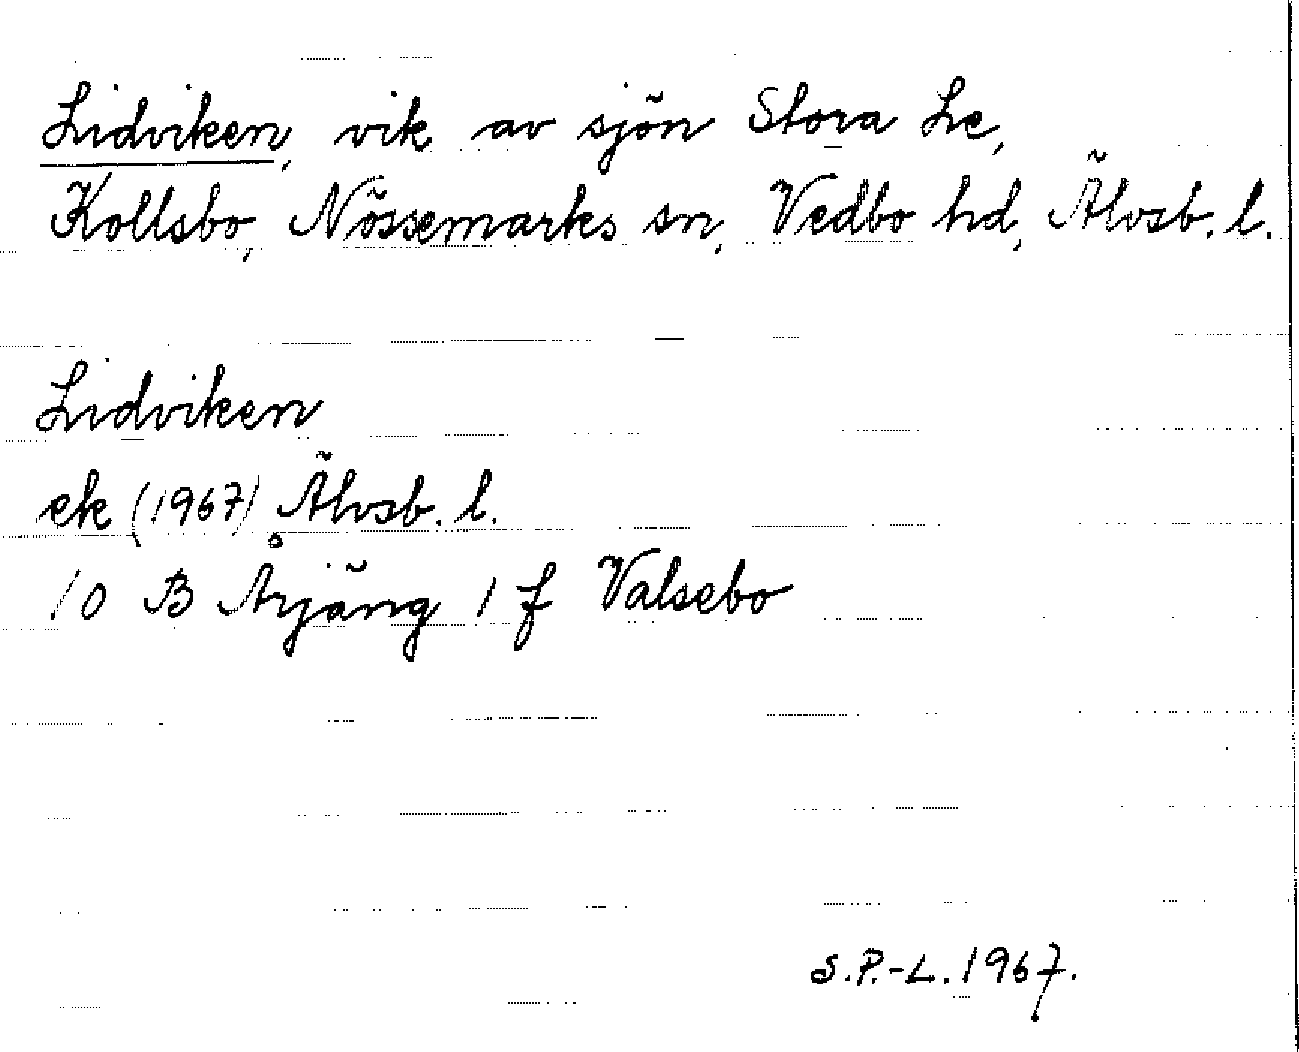 Lidviken, vik av sjön Stora Le,
Kollsbo, Nössemarks sn, Vedbo hd, Älvsb. l.
Lidviken
ek (1967) Älvsb. l.
10 B Årjäng 1 f Valsebo
S.P.-L. 1967.